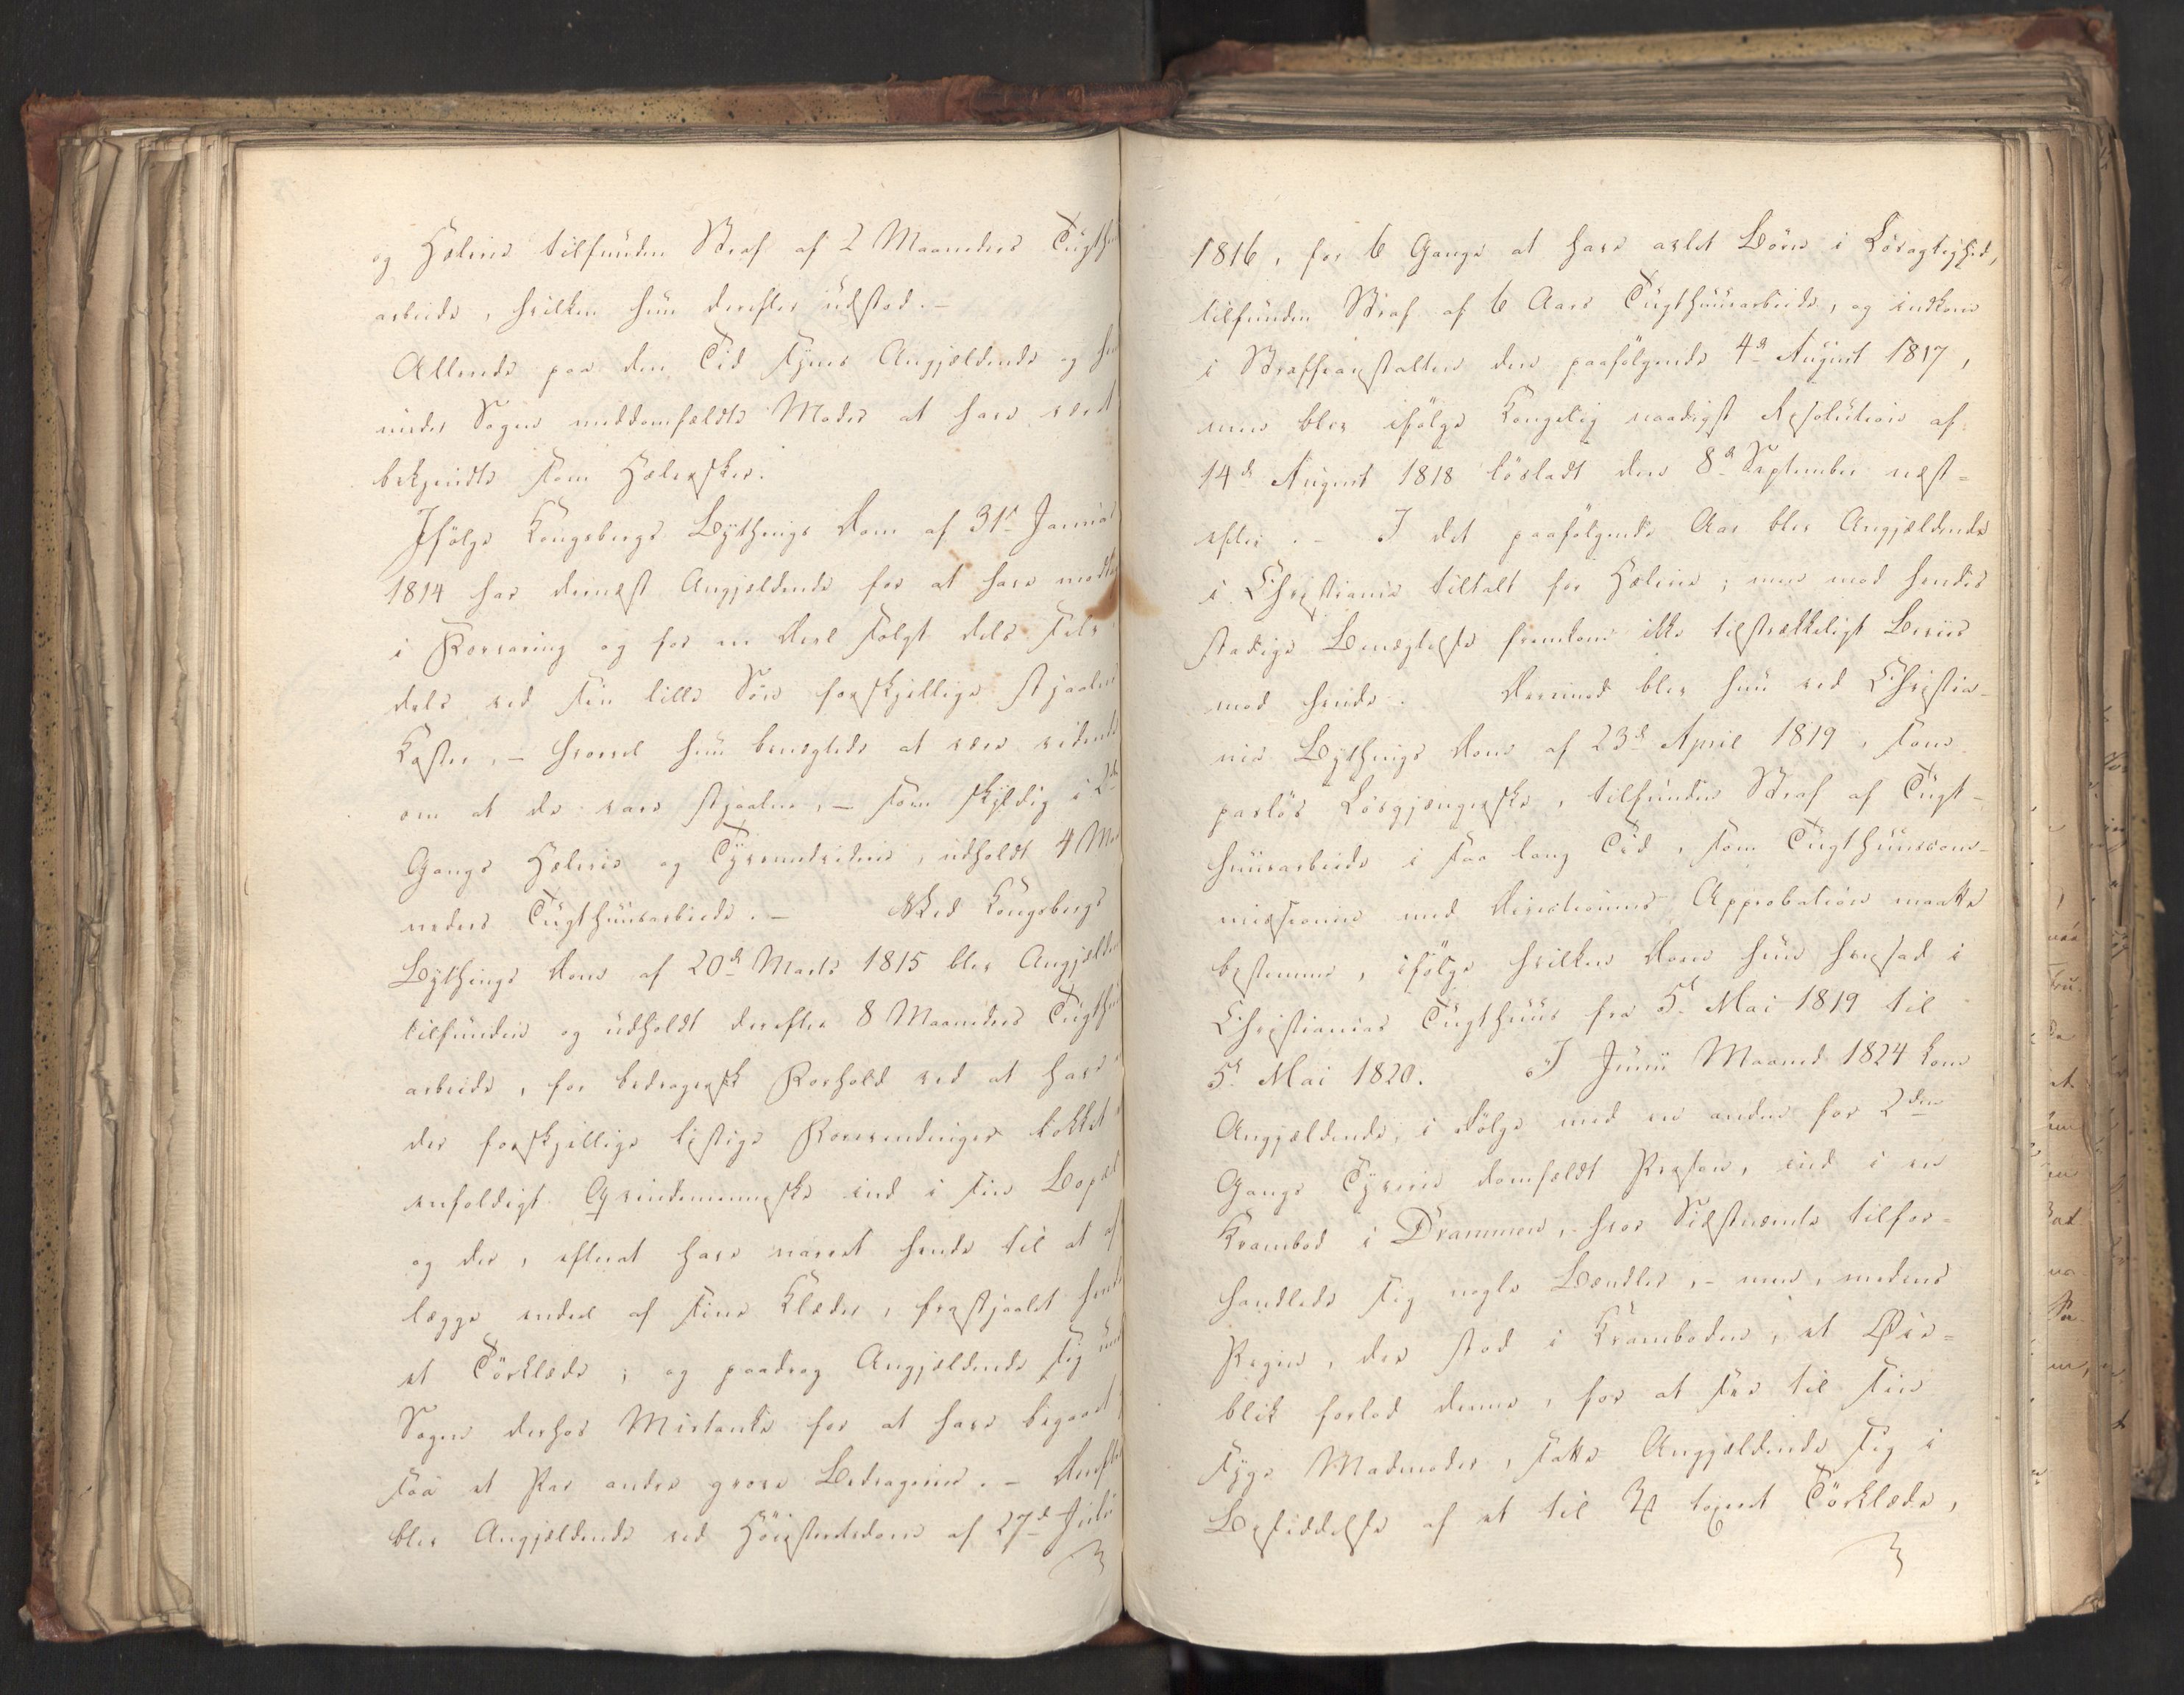 og Hæleri tilfunden Straf af 2 Maaneders Tugth
arbeide, hvilken hun derefter udstod. -
Allerede paa den Tid synes Angjældende og he
under Sagen meddomfældte Moder at have vært
bekjendte som Hælersker.
Ifölge Kongsbergs Bythings Dom af 31te Januar
1814 har dernæst Angjældende for at have modta
i Forvaring og for en Deel solgt dels selv
dels ved sin lille Sön forskjellige stjaalne
Koster, - hvorvel hun benegtede at være vidende
om at de vare stjaalne, - som skyldig i 2den
Gangs Hæleri og Tyvsmedvideri, udholdt 4 Maa
neders Tugthuusarbeide. - Ved Kongsbergs
Bythings Dom af 20de Marts 1815 blev Angjælden
tilfunden og udholdt derefter 8 Maaneders Tugthu
arbeide, for bedragersk Forhold ved at have
der forskjellige listige Foregivender lokket
eenfoldigt Qvindemenneske ind i sin Bopæl
og der, efterat have narret hende til at af
lægge endeel af sine Klæder, frastjaalet hende
et Törklæde; og paadrog Angjældende sig und
Sagen derhos Mistanke for at have begaaet
saa et Par andre grove Bedragerier. - Dereft
blev Angjældende ved Höiesteretsdom af 27de Juli
1816, for 6 Gange at have avlet Börn i Lösagtighed,
tilfunden Straf af 6 Aars Tugthuusarbeide, og indkom
i Straffeanstalten den paafölgende 4de August 1817,
men blev ifölge Kongelig naadigst Resolution af
14de August 1818 lösladt den 8de September næst=
efter. - I det paafölgende Aar blev Angjældende
i Christiania tiltalt for Hæleri; men mod hendes
stadige Benegtelse fremkom ikke tilstrækkeligt Beviis
mod hende. Derimod blev hun ved Christia-
nia Bythings Dom af 23de April 1819, som
pasløs Lösgjængerske, tilfunden Straf af Tugt-
huusarbeide i saa lang Tid, som Tugthuuscom-
missionen med Directionens Approbation maatte
bestemme, ifölge hvilken Dom hun hensad i
Christianias Tugthuus fra 5te Mai 1819 til
5te Mai 1820. I Junii Maaned 1824 kom
Angjældende, i Fölge med en anden for 2den
Gangs Tyverie domfældt Person, ind i en
Krambod i Drammen, hvor Sidstnævnte tilfor=
handlede sig nogle Bændler, - men, medens
Pigen, der stod i Kramboden, et Öie=
blik forlod denne, for at see til sin
syge Madmoder, satte Angjældende sig i
Besiddelse af et til taxeret Törklæde,